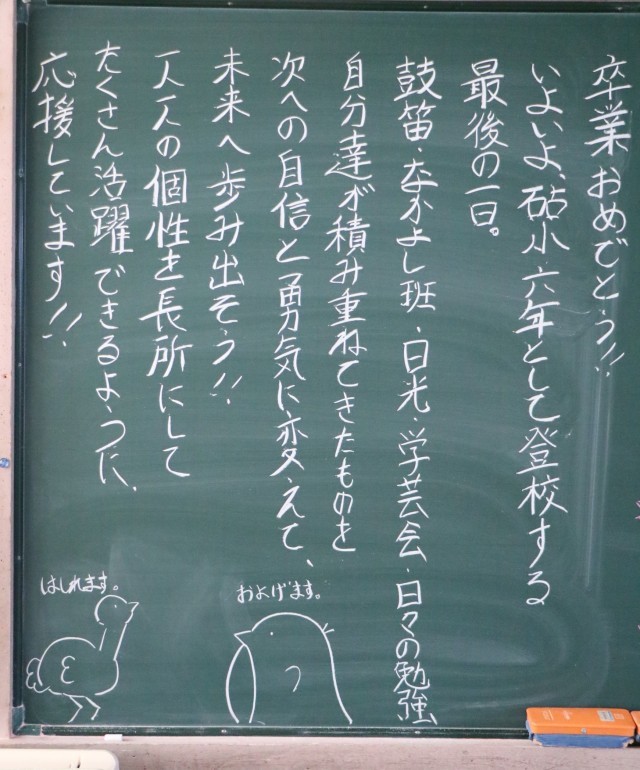 卒業おめでとう!!
いよいよ、砧小六年として登校する
最後の一日。
鼓笛・なかよし班・日光・学芸会・日々の勉強
自分達が積み重ねてきたものを
次への自信と勇気に変えて、
未来へ歩み出そう!!
一人一人の個性を長所にして
たくさん活躍できるように、
応援しています!!
およげます。
はしれます。